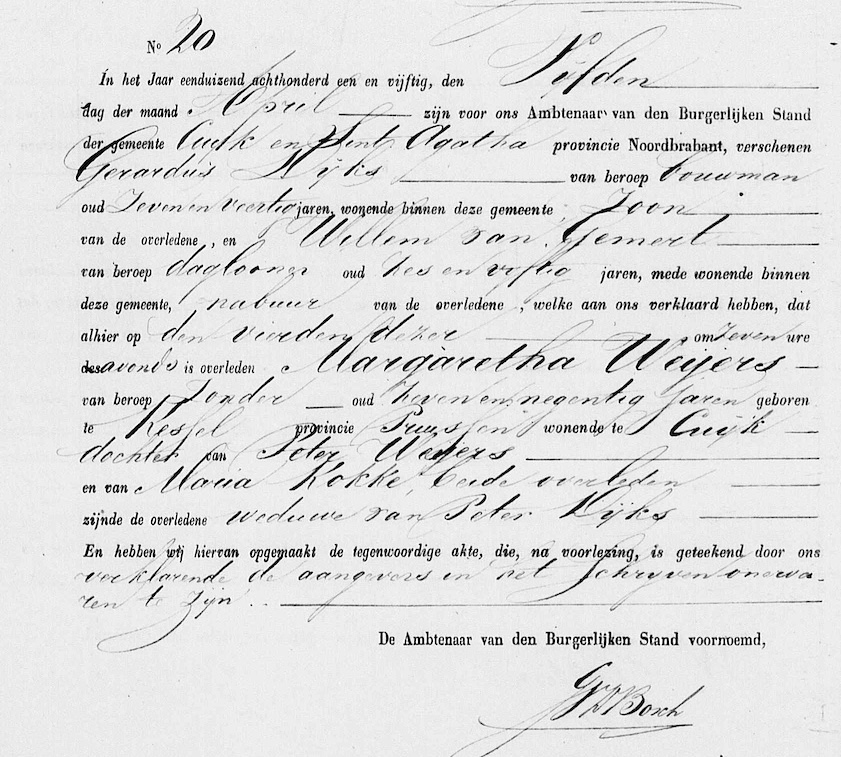 N° 20
In het Jaar eenduizend achthonderd een en vijftig, den Vijfden
dag der maand April zijn voor ons Ambtenaar van den Burgerlijken Stand
der gemeente Cuijk en Sint Agatha provincie Noordbrabant, verschenen
Gerardus Dijks van beroep bouwman
oud Zeven en veertig jaren, wonende binnen deze gemeente, Zoon
van de overledene, en Willem van Gemert
van beroep daglooner oud zes en vijftig jaren, mede wonende binnen
deze gemeente, nabuur van de overledene, welke aan ons verklaard hebben, dat
alhier op den vierden dezer om zeven ure
des avonds is overleden Margaretha Weijers
van beroep zonder oud zeven en negentig jaren geboren
te Kessel provincie Pruyssen wonende te Cuijk
dochter van Peter Weijers
en van Maria Kokke, beide overleden
zijnde de overledene weduwe van Peter Dijks
En hebben wij hiervan opgemaakt de tegenwoordige akte, die, na voorlezing, is geteekend door ons
verklarende de aangevers in het schryven onerva-
ren te zijn..
De Ambtenaar van den Burgerlijken Stand voornoemd,
Bosch